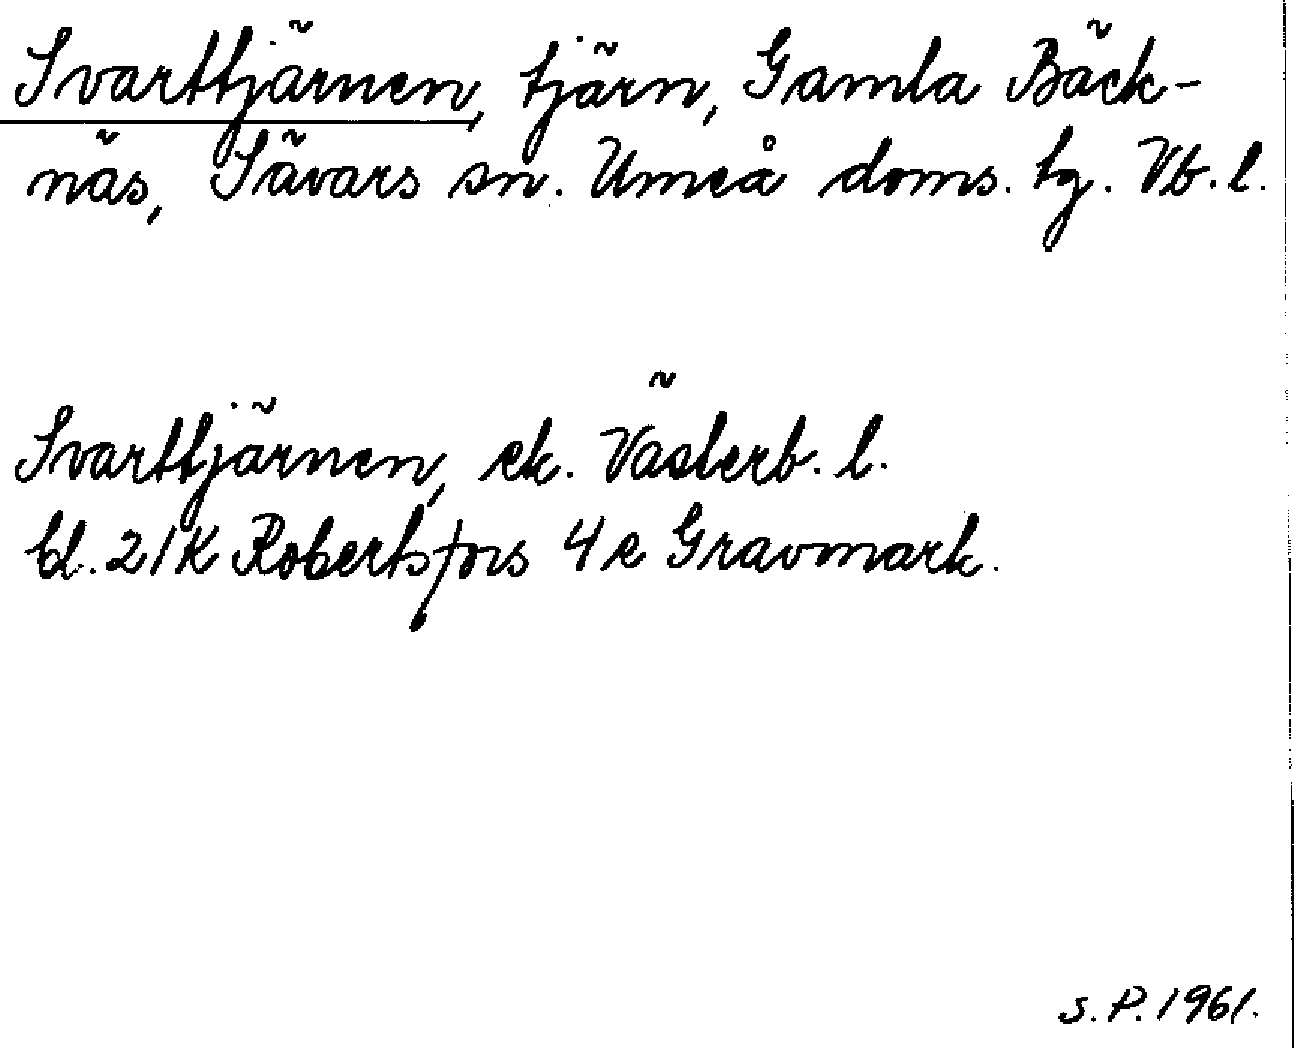 Svarttjärnen, tjärn, Gamla Bäck-
näs, Sävars sn. Umeå doms. tg. Vb. l.
Svarttjärnen, ek. Västerb. l.
bl. 21K Robertsfors 4e Gravmark.
S. P. 1961.